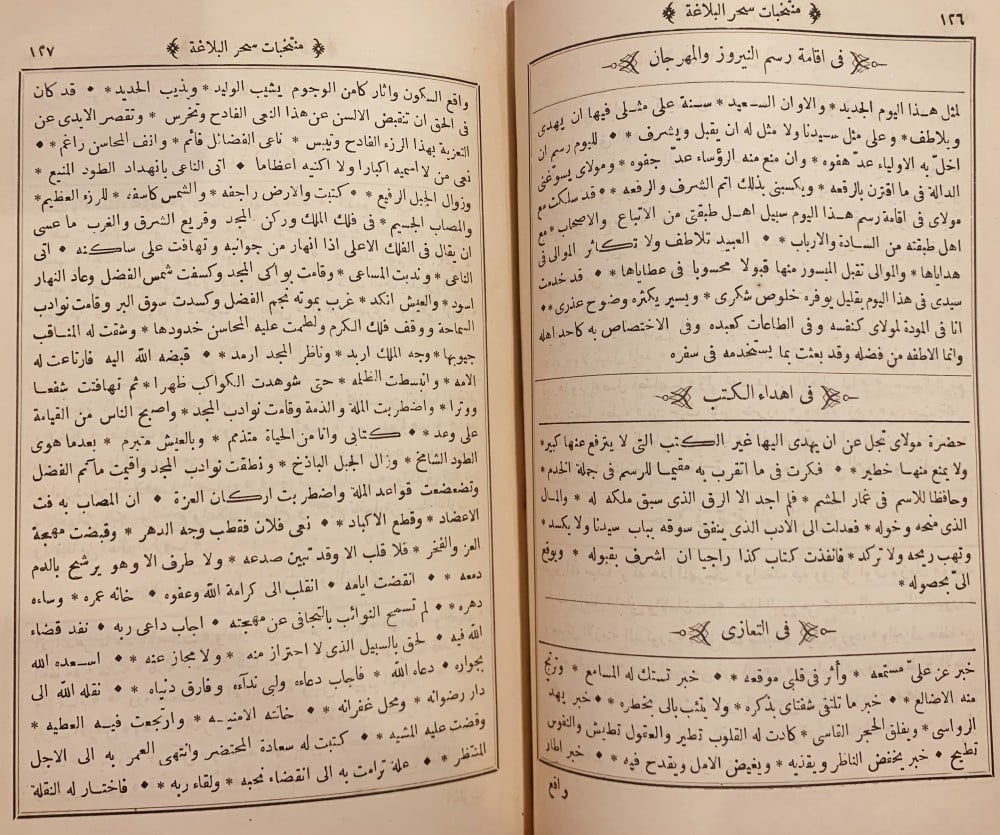 ١٢٦
منتخبات سحر البلاغة
فى اقامة رسم النيروز والمهرجان
لمثل هذا اليوم الجديد * والاوان السعيد * سنة على مثلى فيها ان يهدى
ويلاطف * وعلى مثل سيدنا ولا مثل له ان يقبل ويشرف * • لليوم رسم ان
اخلّ به الاولياء عدّ هفوه * وان منع منه الرؤساء عدّ جفوه * ومولاى يسوّغنى
الدالة فى ما اقترن بالرقعه * ويكسبنى بذلك اتم الشرف والرفعه * • قد سلكت مع
مولاى فى اقامة رسم هذا اليوم سبيل اهل طبقتى من الاتباع والاصحاب * مع
اهل طبقته من السادة والارباب * • العبيد تلاطف ولا تكاثر الموالى فى
هداياها * والموالى تقبل الميسور منها قبولا محسوبا فى عطاياها * • قد خدمت
سيدى فى هذا اليوم بقليل يوفره خلوص شكرى * ويسير يكثره وضوح عذرى * •
انا فى المودة لمولاى كنفسه وفى الطاعات كعبده وفى الاختصاص به كاحد اهله
وانما الاطفه من فضله وقد بعثت بما يستخدمه فى سفره
فى اهداء الكتب
حضرة مولاى تجل عن ان يهدى اليها غير الكتب التى لا يترفع عنها كبير *
ولا يمنع منها خطير * • فكرت فى ما اتقرب به مقيما للرسم فى جملة الخدم *
وحافظا للاسم فى غمار الحشم * فلم اجد الا الرق الذى سبق ملكه له * والمال
الذى منحه وخوله * فعدلت الى الادب الذى ينفق سوقه بباب سيدنا ولا يكسد *
وتهب ريحه ولا تركد * فانفذت كتاب كذا راجيا ان اشرف بقبوله * ويوقع
الىّ بحصوله *
فى التعازى
خبر عز علىّ مستمعه * وأثر فى قلبى موقعه * • خبر تستك له المسامع * وترتج
منه الاضالع * • خبر ما تلتقى شفتاى بذكره * ولا يثبت بالى بخطره * • خبر يهد
الرواسى * ويفلق الحجر القاسى * كادت له القلوب تطير والعقول تطيش والنفوس
تطيح • خبر يخفض الناظر ويقذيه * ويغيض الامل ويقدح فيه * • خبر اطار
واقع
١٢٧
منتخبات سحر البلاغة
واقع السكون واثار كامن الوجوم يشيب الوليد * ويذيب الحديد * • قد كان
فى الحق ان تنقبض الالسن عن هذا النعى الفادح وتخرس * وتقصر الايدى عن
التعزية بهذا الرزء الفادح وتيبس * ناعى الفضائل قائم * وانف المحاسن راغم * •
نعى من لا اسميه اكبارا ولا اكنيه اعظاما • اتى الناعى بانهداد الطود المنيع *
وزوال الجبل الرفيع * • كتبت والارض راجفه * والشمس كاسفه * للرزء العظيم *
والمصاب الجسيم * فى فلك الملك وركن المجد وقريع الشرق والغرب ما عسى
ان يقال فى الفلك الاعلى اذا انهار من جوانبه وتهافت على ساكنه • اتى
الناعى * وندبت المساعى * وقامت بواكى المجد وكسفت شمس الفضل وعاد النهار
اسود * والعيش انكد * غرب بموته نجم الفضل وكسدت سوق البر وقامت نوادب
السماحة ووقف فلك الكرم ولطمت عليه المحاسن خدودها * وشقت له المناقب
جيوبها * وجه الملك اربد * وناظر المجد ارمد * • قبضه الله اليه فارتاعت له
الامه * وانبسطت الظلمه * حتى شوهدت الكواكب ظهرا * ثم تهافتت شفعا
ووترا * واضطربت الملة والذمة وقامت نوادب المجد * واصبح الناس من القيامة
على وعد * • كتابى وانا من الحياة متذمم * وبالعيش متبرم * بعدما هوى
الطود الشامخ * وزال الجبل الباذخ * ونطقت نوادب المجد واقيمت مآتم الفضل
وتضعضعت قواعد الملة واضطربت اركان العزة • ان المصاب به فت
الاعضاد * وقطع الاكباد * • نعى فلان فقطب وجه الدهر * وقبضت مهجة
العز والفخر * فلا قلب الا وقد تبين صدعه * ولا طرف الا وهو يرشح بالدم
دمعه * • انقضت ايامه • انقلب الى كرامة الله وعفوه • خانه عمره * وساءه
دهره * • لم تسمح النوائب بالتجافى عن مهجته • اجاب داعى ربه • نفد قضاء
الله فيه • لحق بالسبيل الذى لا احتراز منه * ولا مجاز عنه * اسعده الله
بجواره * دعاه الله * فاجاب دعاءه ولبى نداءه وفارق دنياه * • نقله الله الى
دار رضوانه * ومحل غفرانه * • خانته الامنيه * وارتجعت فيه العطيه *
وقضت عليه المشيه * • كتبت له سعادة المحتضر وانتهى العمر به الى الاجل
المنتظر * • علة ترامت به الى انقضاء نحبه * ولقاء ربه * • فاختار له النقلة